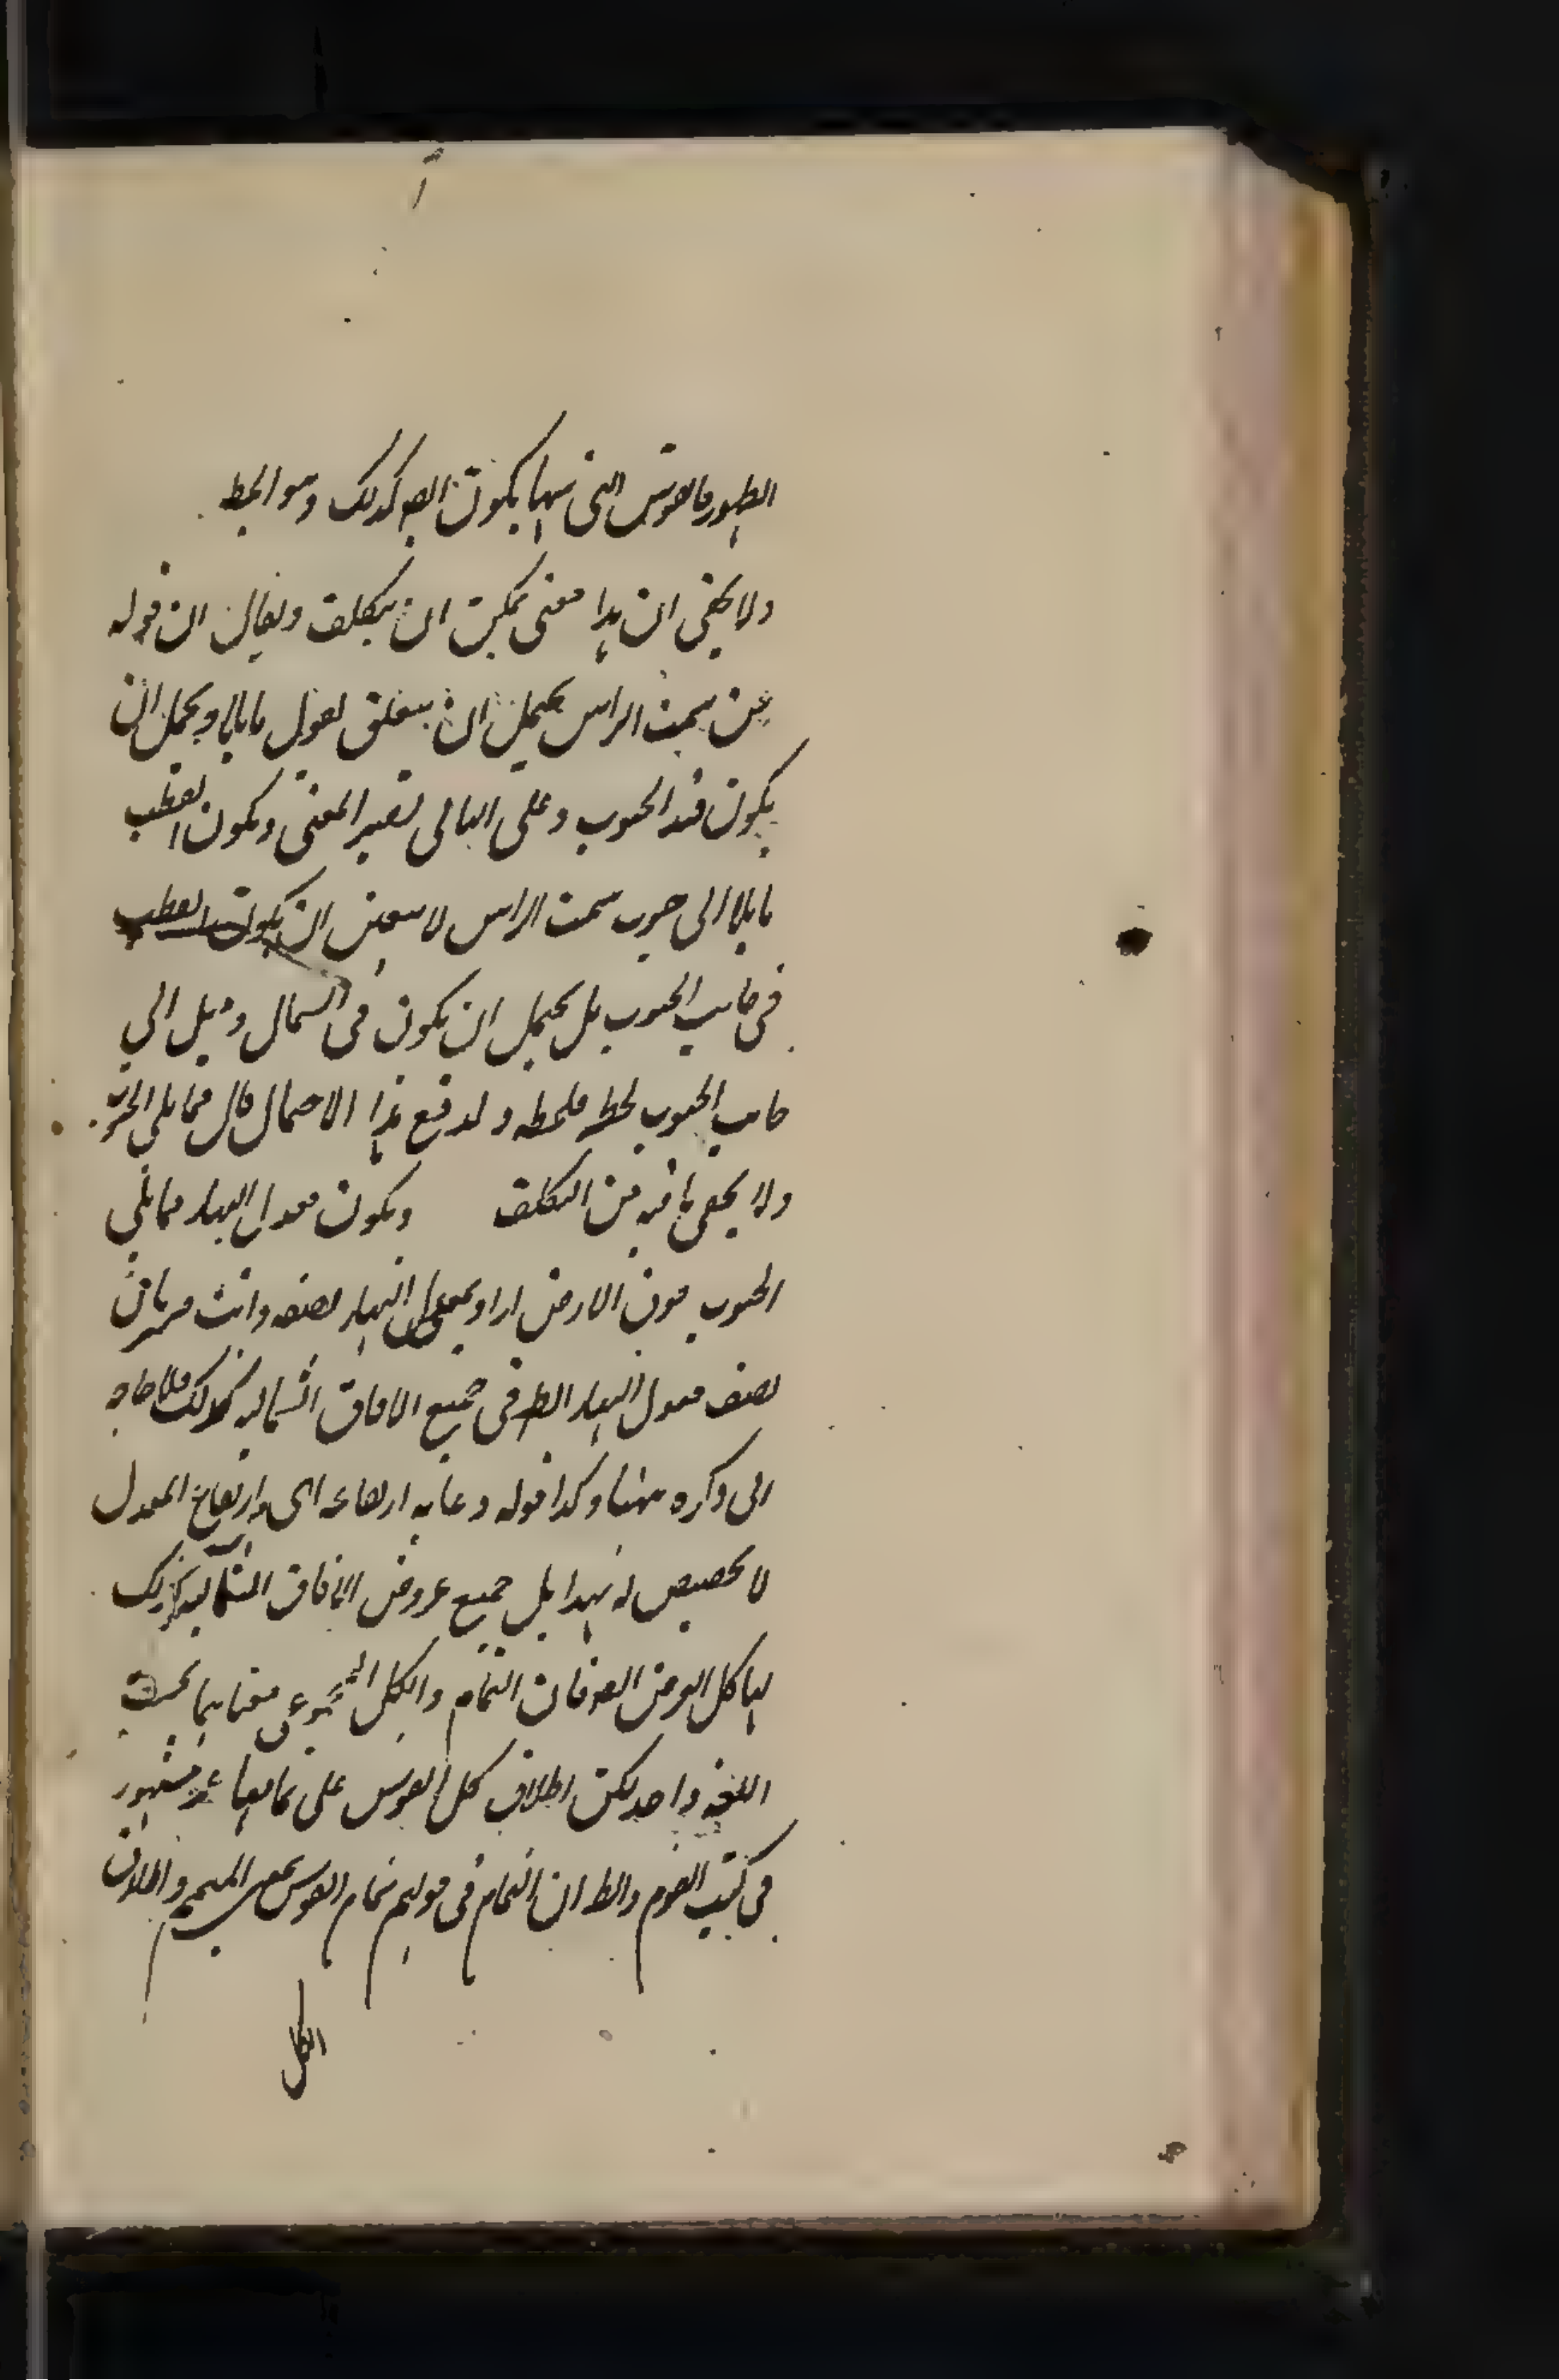 الظهور فالقوس التی بینها یکون ایض کذلک وهو الخط
ولا یخفی ان هذا معنی یمکن ان یتکلف ویقال ان قوله
عن سمت الراس یحتمل ان یتعلق بقول مایلا ویحتمل ان
یکون قید الجنوب وعلی الثانی یتغیر المعنی ویکون القطب
مایلا الی جنوب سمت الراس لا یتعین ان یکون القطب
فی جانب الجنوب بل یحتمل ان یکون فی الشمال ومیل الی
جانب الجنوب لحظه فلحظه ولدفع هذا الاحتمال قال مما یلی الجنوب
ولا یخفی ما فیه من التکلف ویکون معدل النهار مما یلی
الجنوب فوق الارض اراد بمعدل النهار نصفه وانت خبیر بان
نصف معدل النهار الظ فی جمیع الافاق الشمالیه کذلک فلا حاجه
الی ذکره ههنا وکذا قوله وغایه ارتفاعه ای وارتفاع المعدل
لا تخصیص له بهذا بل جمیع عروض الافاق الشمالیه کذلک
کل العرض التمام والکل المجموعی معناهما بحسب
اللغه واحد لکن اطلاق کل القوس علی تمامها غیر مشهور
فی کتب القوم والظ ان التمام فی قولهم تمام القوس بمعنی المتمم واطلاق
الکل